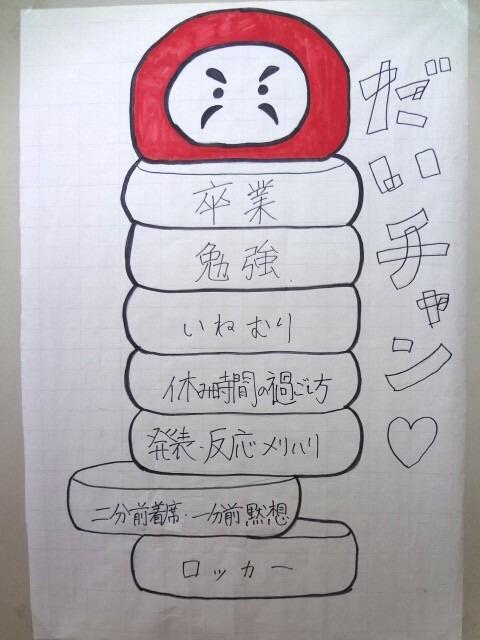 だいチャン♡
卒業
勉強
いねむり
休み時間の過ごし方
発表・反応メリハリ
二分前着席・一分前黙想
ロッカー